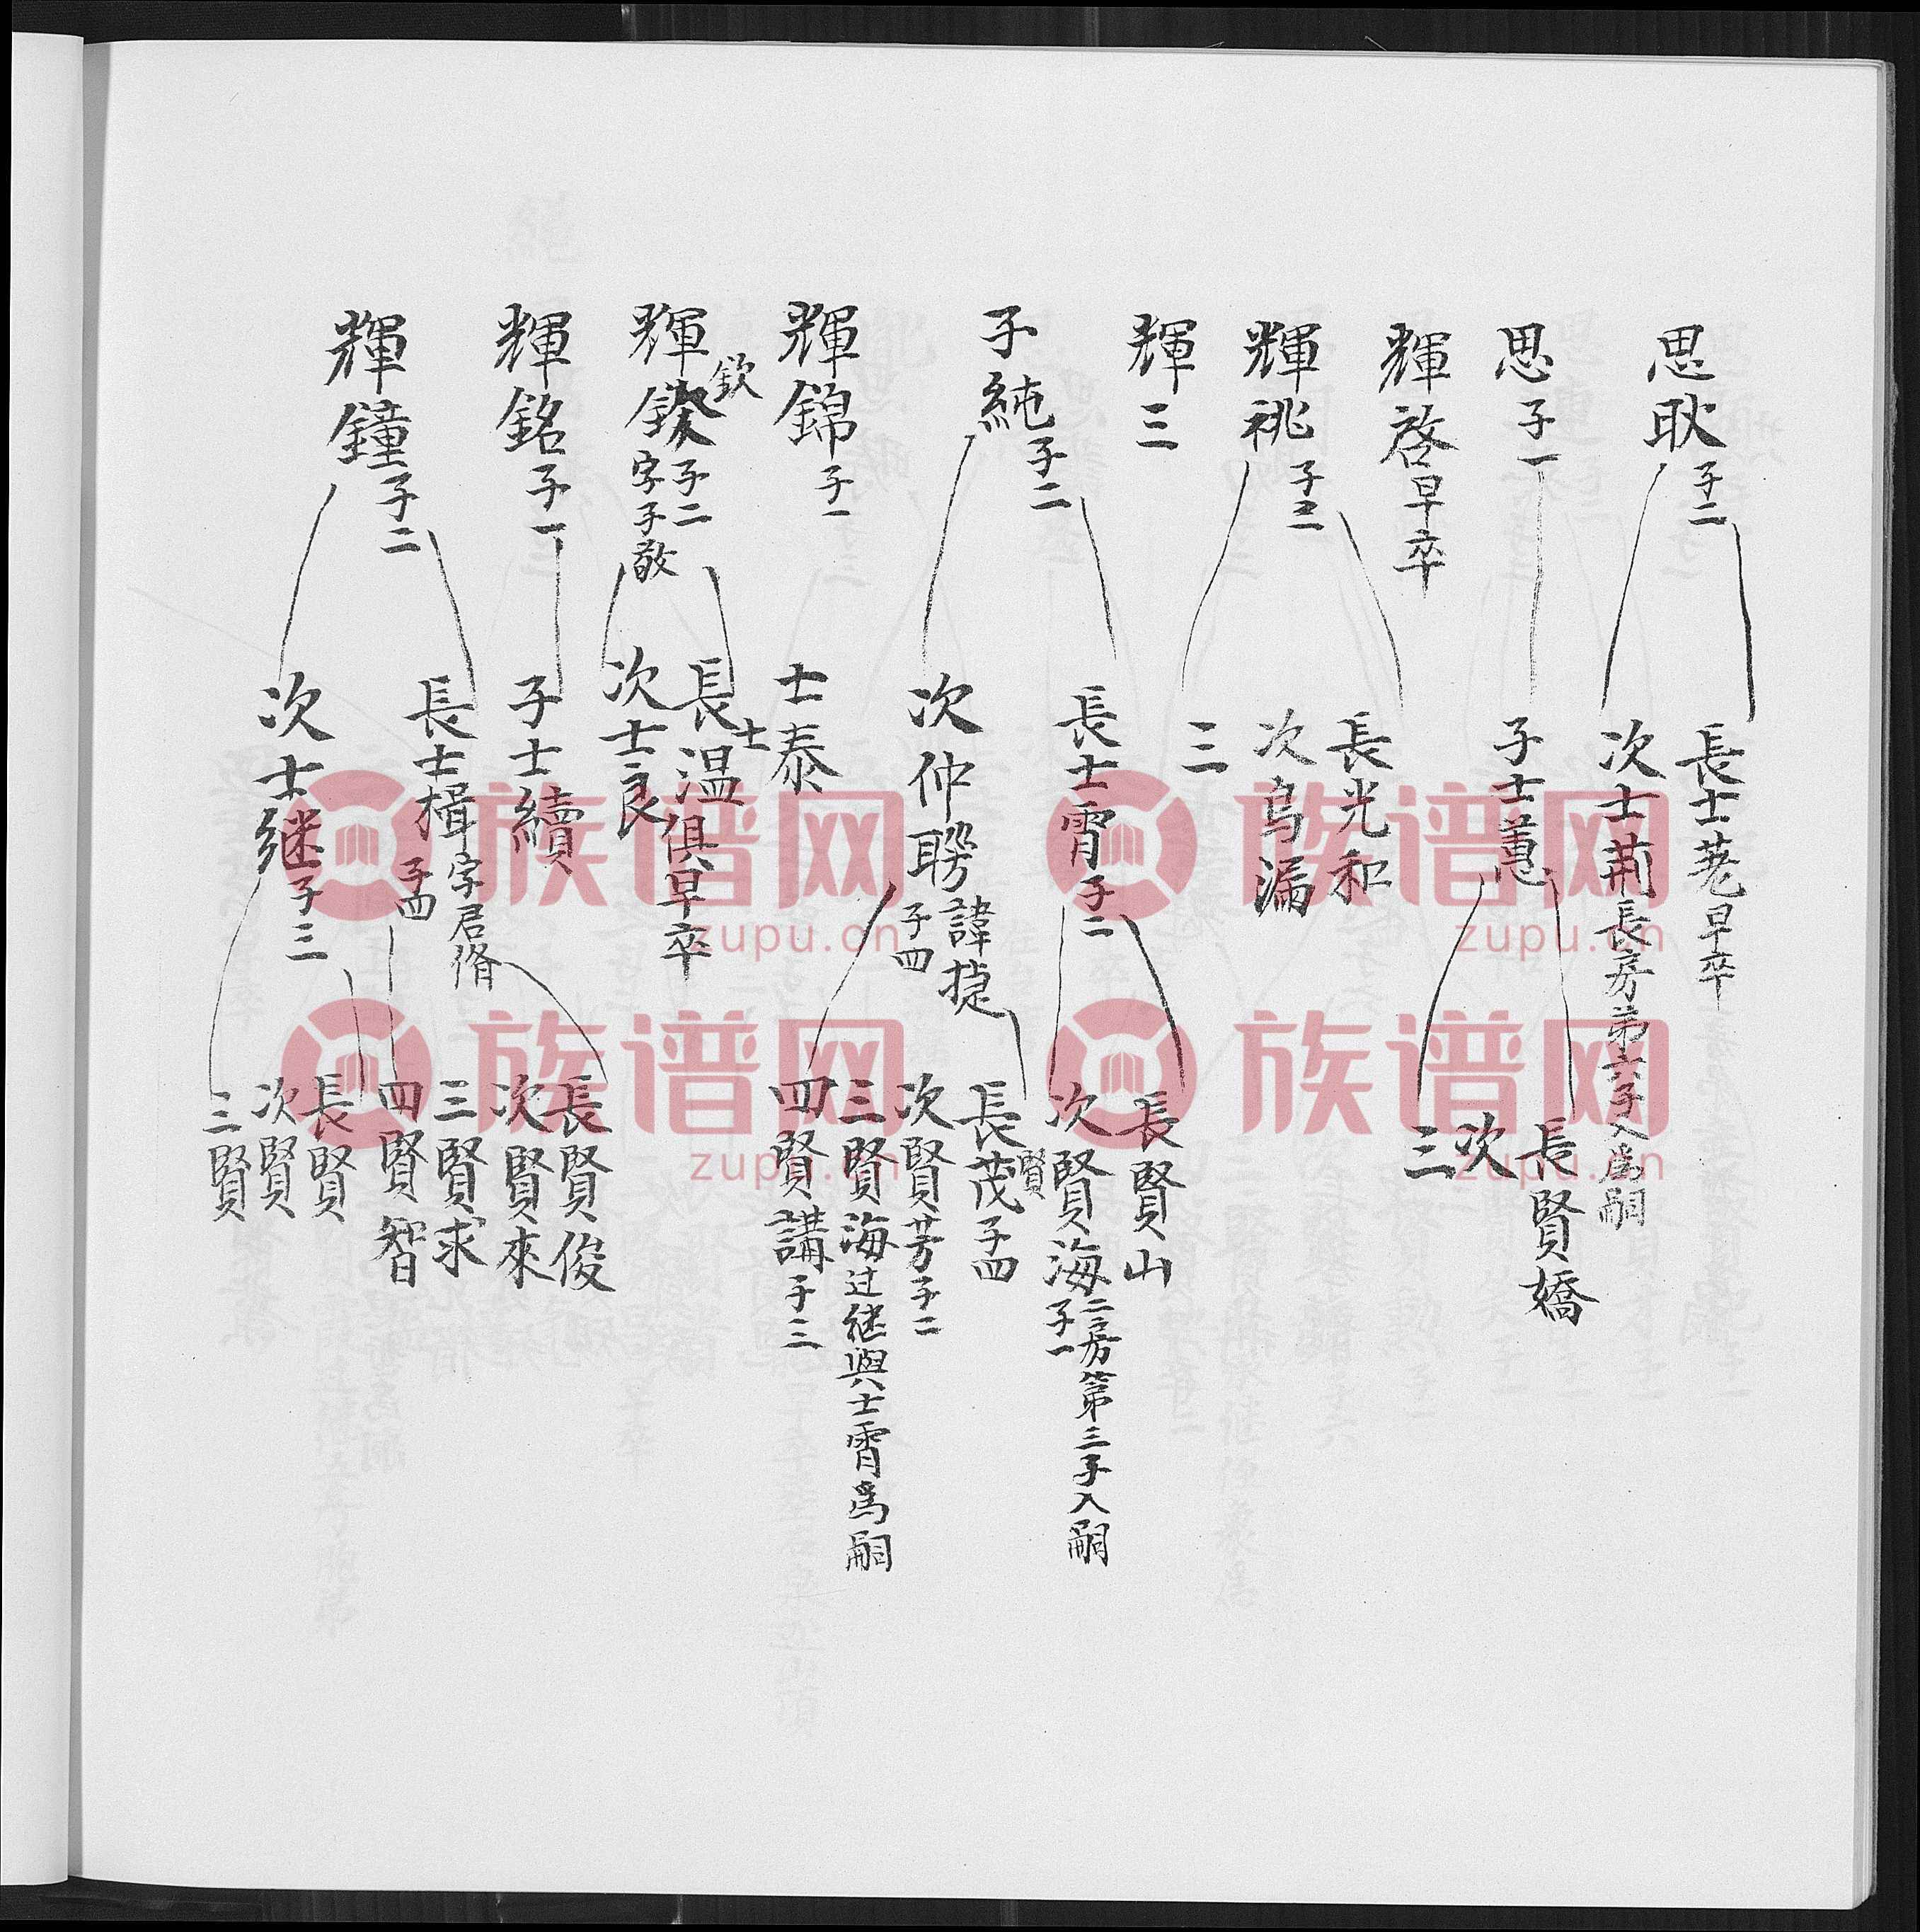 思耿子二
思子一
輝啓早卒
輝祧子二
輝三
子純子二
輝錦子一
輝欽子二
字子敬
輝銘子一
輝鐘子二
長士荖早卒
次士荊長房第六子入為嗣
子士蕙
長光和
次烏漏
三
長士霄子二
次仲聮諱㨗
子四
士泰
長士温俱早卒
次士良
子士續
長士楫字君脩
子四
次士継子三
長賢嬌
次
三
長賢山
次賢海二房第三子入嗣
子一
長賢茂子四
次賢芳子二
三賢海过继與士霄爲嗣
四賢講子三
長賢俊
次賢來
三賢求
四賢智
長賢
次賢
三賢
族谱网
zupu.cn
族谱网
zupu.cn
族谱网
zupu.cn
族谱网
zupu.cn